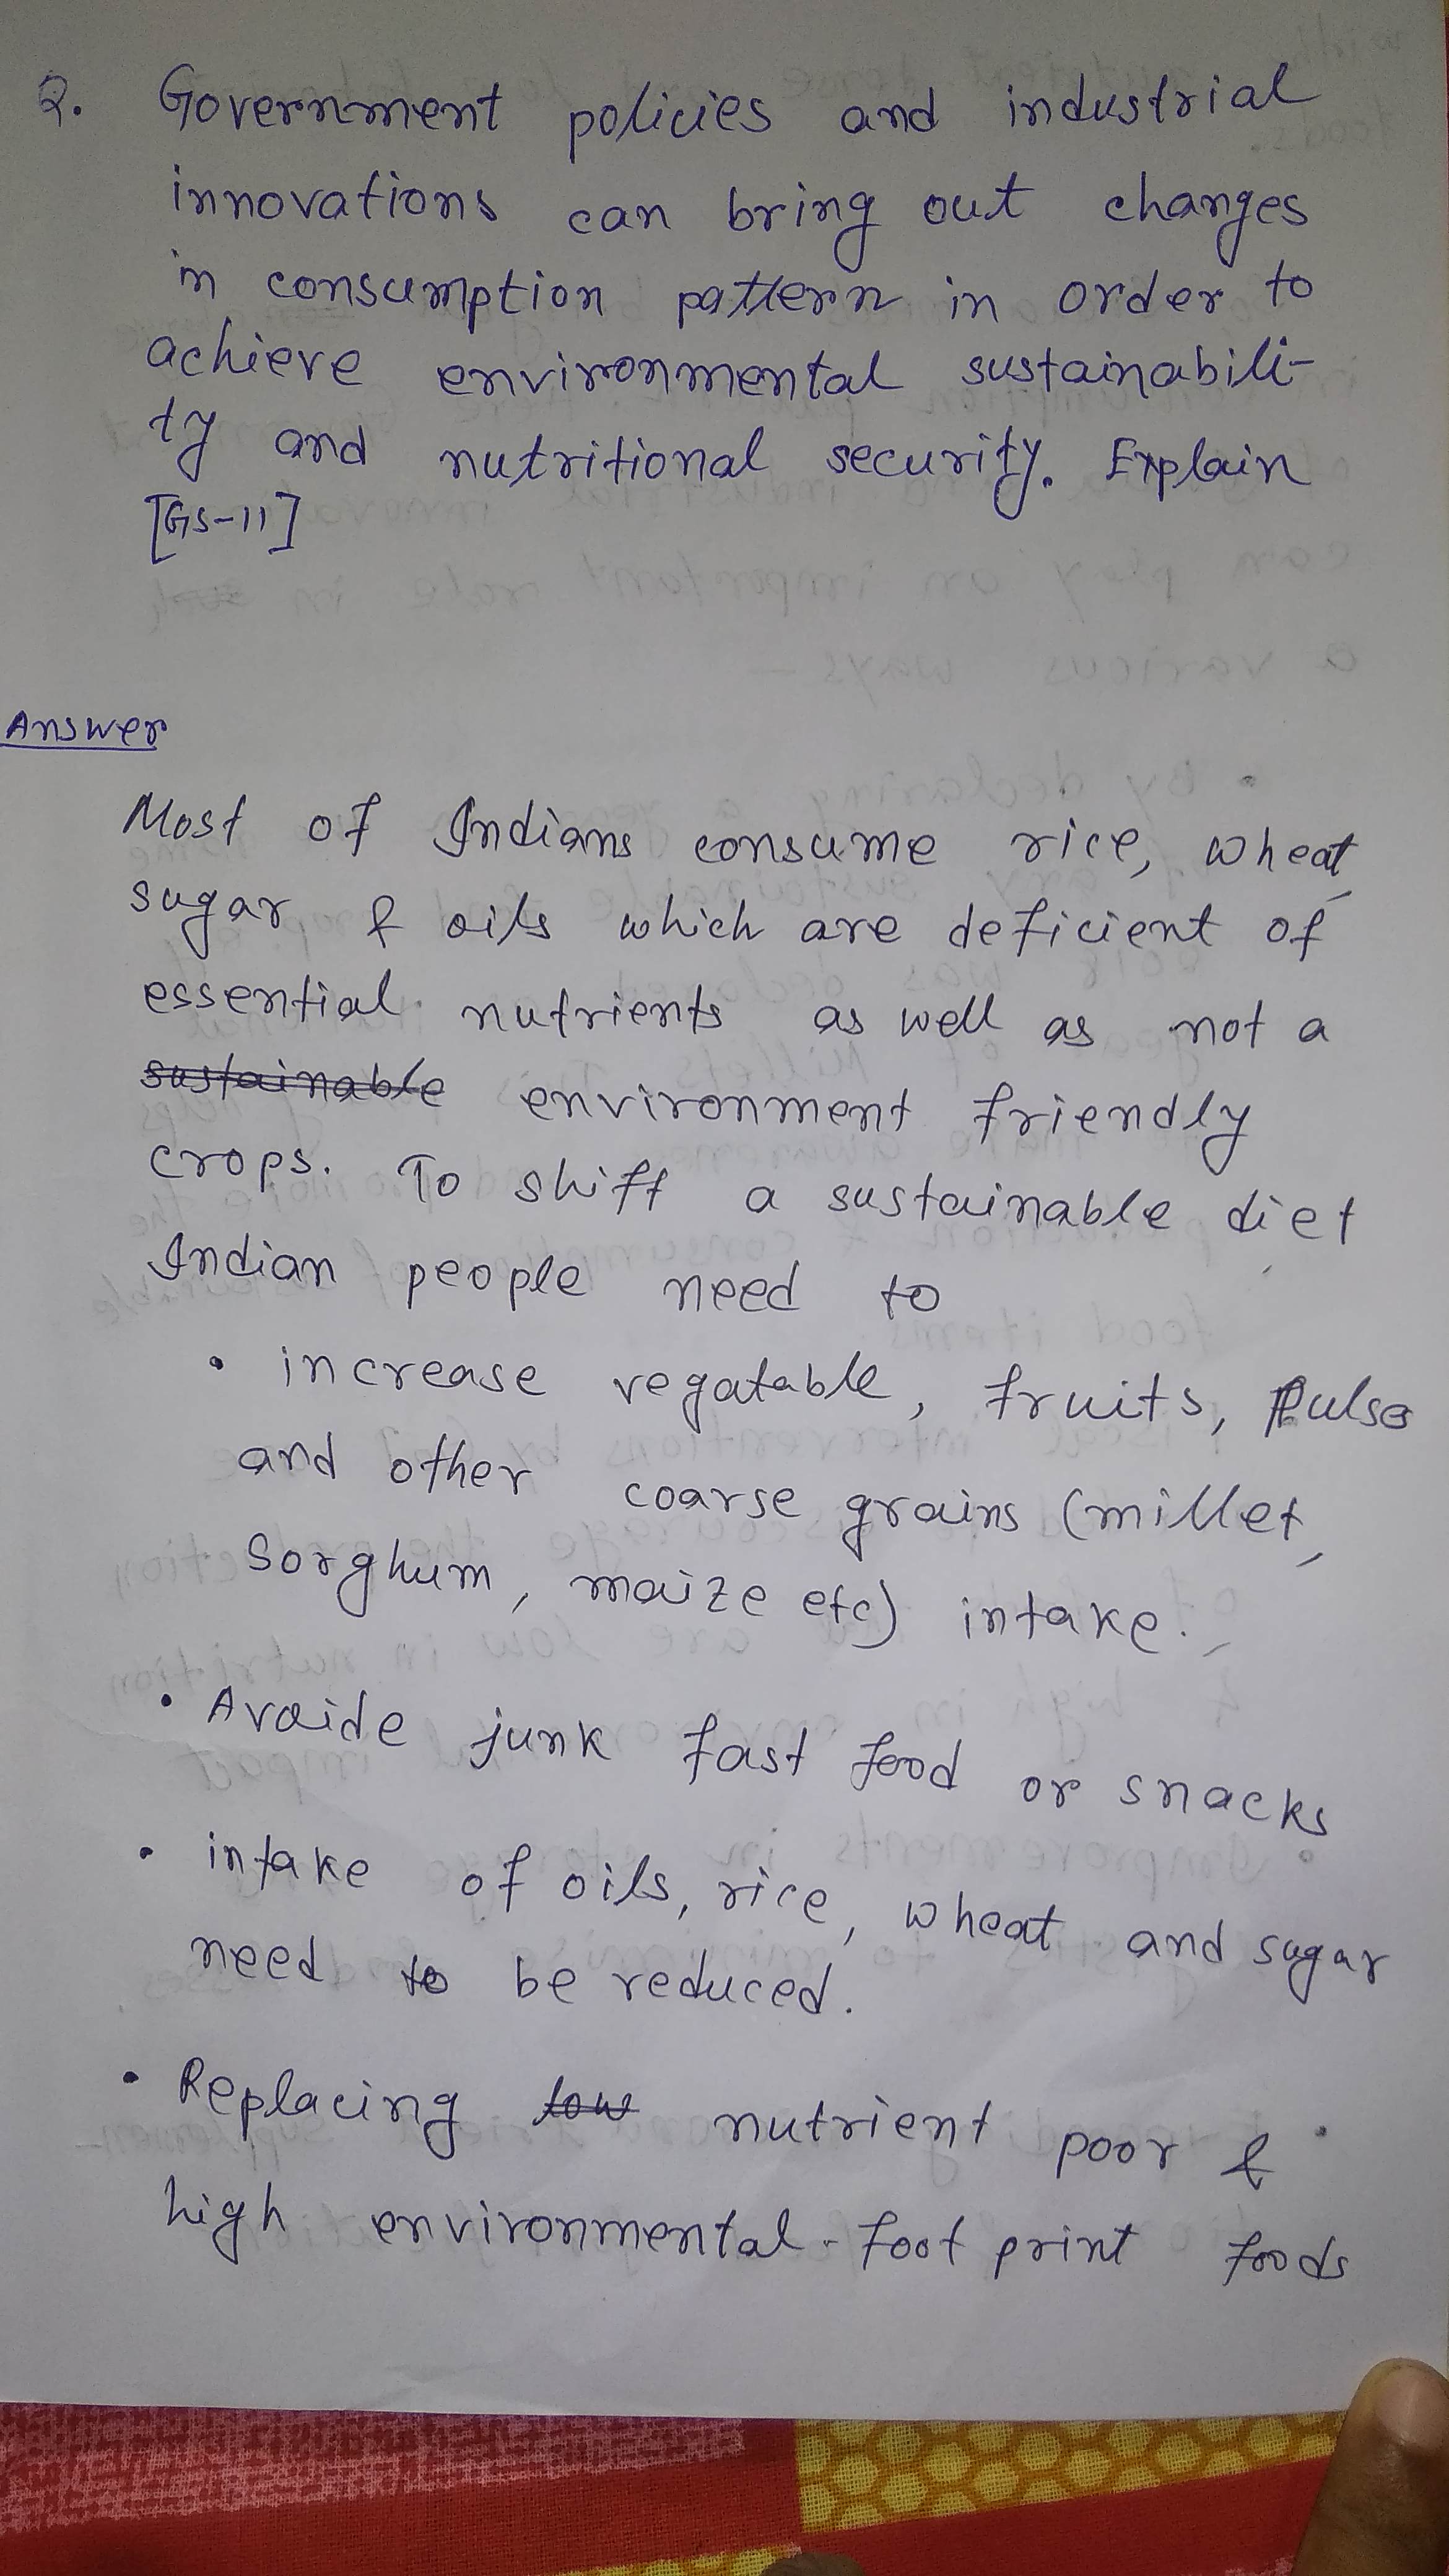 Q. Government policies and industrial
innovations can bring out changes
in consumption pattern in order to
achieve environmental sustainabili-
ty and nutritional security. Explain
[GS-II]
Answer
Most of Indians consume rice, wheat,
sugar & oils which are deficient of
essential nutrients as well as not a
sustainable environment friendly
crops. To shift a sustainable diet
Indian people need to
• increase vegatable, fruits, Pulse
and other coarse grains (millet,
Sorghum, maize etc) intake.
• Avoide junk fast food or snacks
• intake of oils, rice, wheat and sugar
need to be reduced.
• Replacing low nutrient poor &
high environmental-foot print foods